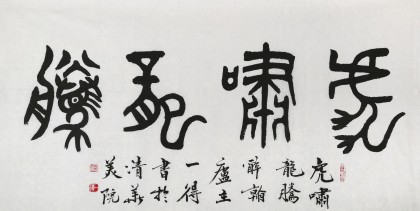 虎嘯龍騰
虎嘯
龍騰
醉翰
廬主
一得
書於
清華
美院